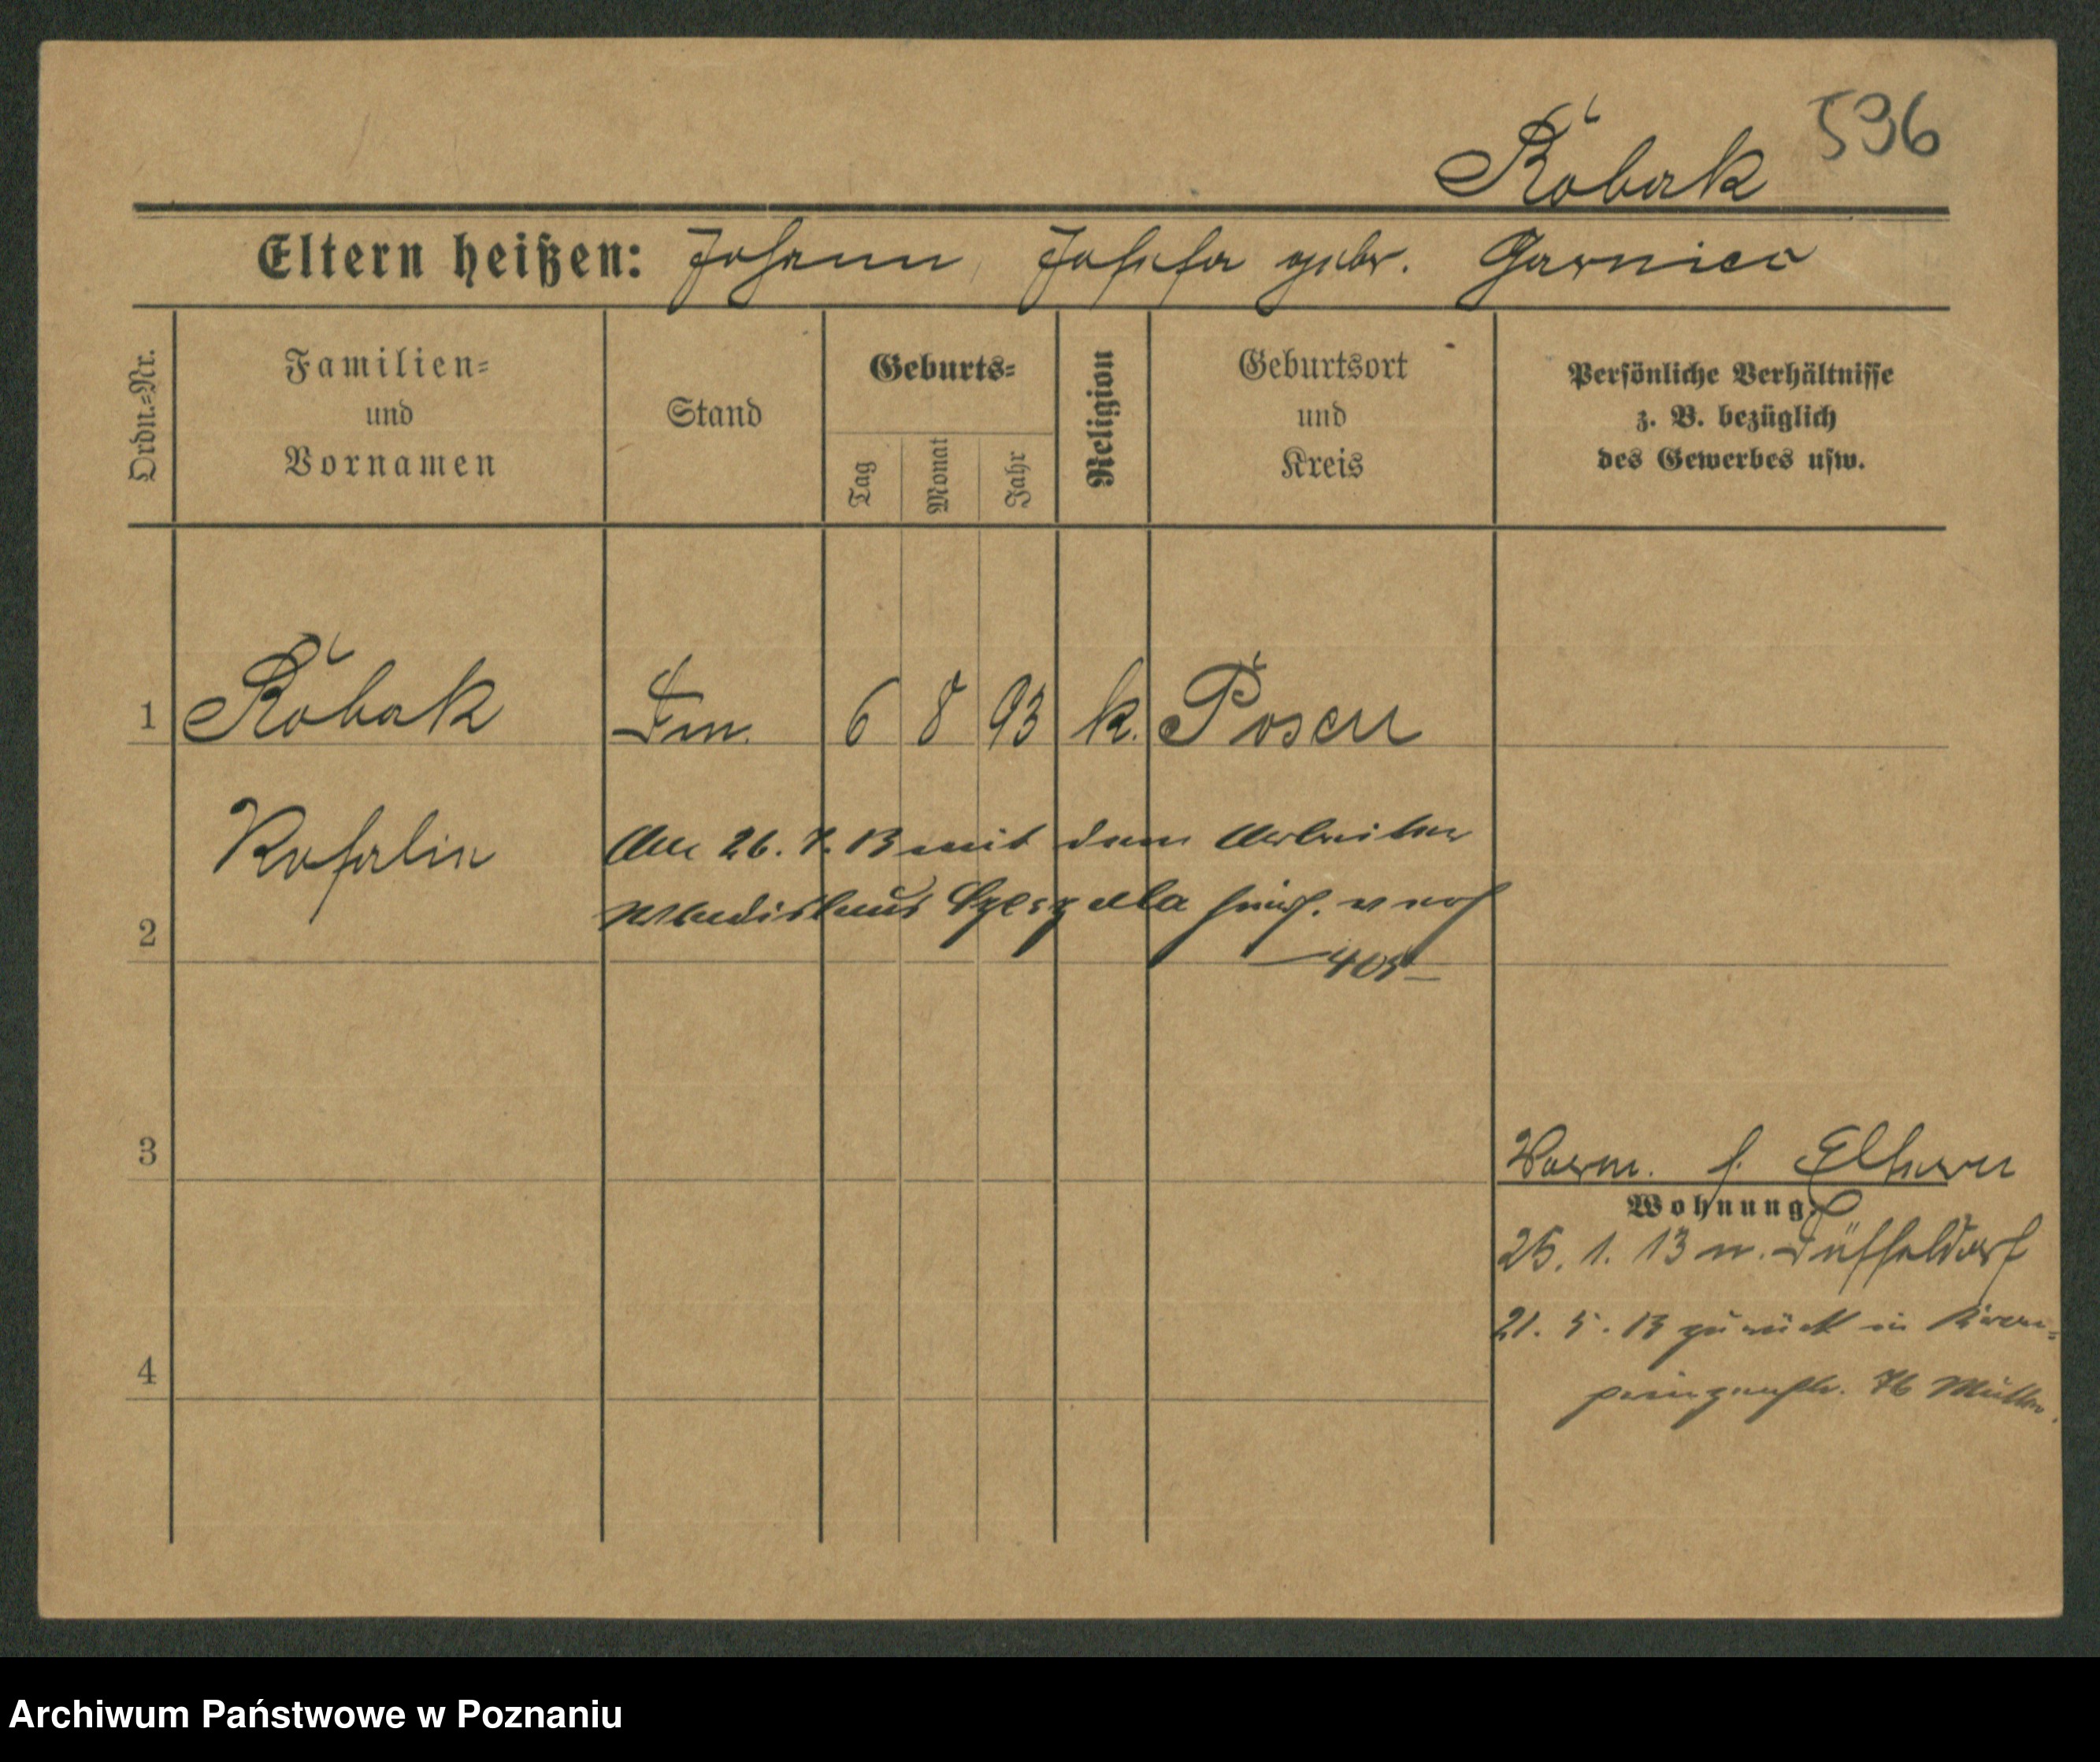 Robak 596
Eltern heißen: Johann, Josefa gebr. Garniec
Ordn.=Nr.
Familien=
und
Vornamen
Stand
Geburts=
Tag
Monat
Jahr
Religion
Geburtsort
und
Kreis
Persönliche Verhältnisse
z. B. bezüglich
des Gewerbes usw.
1 Robak 6 8 93 k. Posen
Rosalie
Am 26. 7. 13 mit dem Arbeiter
Wladislaus hier
2
405
3
b. Eltern
Wohnung:
25. 1. 13 n. Düsseldorf
21. 5. 13 zurück in Kron=
prinzenstr. 76 Müller.
4
Archiwum Państwowe w Poznaniu